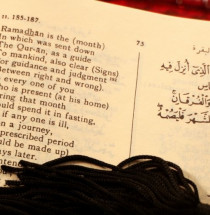 II. 185-187.
Ramadhān is the (month)
In which was sent down
The Qur-ān, as a guide
To mankind, also clear (Signs)
For guidance and judgment
(Between right and wrong).
every one of you
is present (at his home)
that month
spend it in fasting,
if any one is ill,
on a journey,
prescribed period
be made up)
days later.
75
الَّذِىٓ اُنْزِلَ فِيْهِ
وَالْفُرْقَانِ